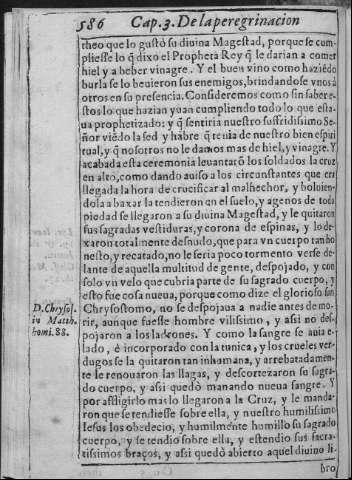 586 Cap. 3. De la peregrinacion
theo que lo gustò su diuina Magestad, porque se cum-
pliesse lo q̃ dixo el Propheta Rey q̃ le darian a comer
hiel y a beber vinagre. Y el buen vino como haziẽdo
burla se lo beuieron sus enemigos, brindandose vnos à
otros en su presencia. Consideremos como sin saber e-
stos lo que hazian yuan cumpliendo todo lo que esta-
ua prophetizado: y q̃ sentiria nuestro suffridissimo Se-
ñor viẽdo la sed y hãbre q̃ tenia de nuestro bien espui
tual, y q̃ nosotros no le damos mas de hiel, y vinagre. Y
acabada esta ceremonia leuantarõ los soldados la cruz
en alto, como dando auiso a los circunstantes que era
llegada la hora de crucificar al malhechor, y boluien-
dola a baxar la tendieron en el suelo, y agenos de toda
piedad se llegaron a su diuina Magestad, y le quitaron
sus sagradas vestiduras, y corona de espinas, y lo de-
xaron totalmente desnudo, que para vn cuerpo tan ho
nesto, y recatado, no le seria poco tormento verse de-
lante de aquella multitud de gente, despojado, y con
solo vn velo que cubria parte de su sagrado cuerpo, y
esto fue cosa nueua, porque como dize el glorioso san
D. Chrysos.
in Matth.
homi. 88.
Chrysostomo, no se despojaua a nadie antes de mo-
rir, aunque fuesse hombre vilissimo, y assi no des-
pojaron a los ladrones. Y como la sangre se auia e-
lado, è incorporado con la tunica, y los crueles ver-
dugos se la quitaron tan inhumana, y arrebatadamen-
te se renouaron las llagas, y descortezaron su sagra-
do cuerpo, y assi quedò manando nueua sangre. Y
por affligirlo mas lo llegaron a la Cruz, y le manda-
ron que se tendiesse sobre ella, y nuestro humilissimo
Iesus los obedecio, y humilmente humillo su sagrado
cuerpo, y se tendio sobre ella, y estendio sus sacra-
tissimos braços, y assi quedò abierto aquel diuino li-
bro